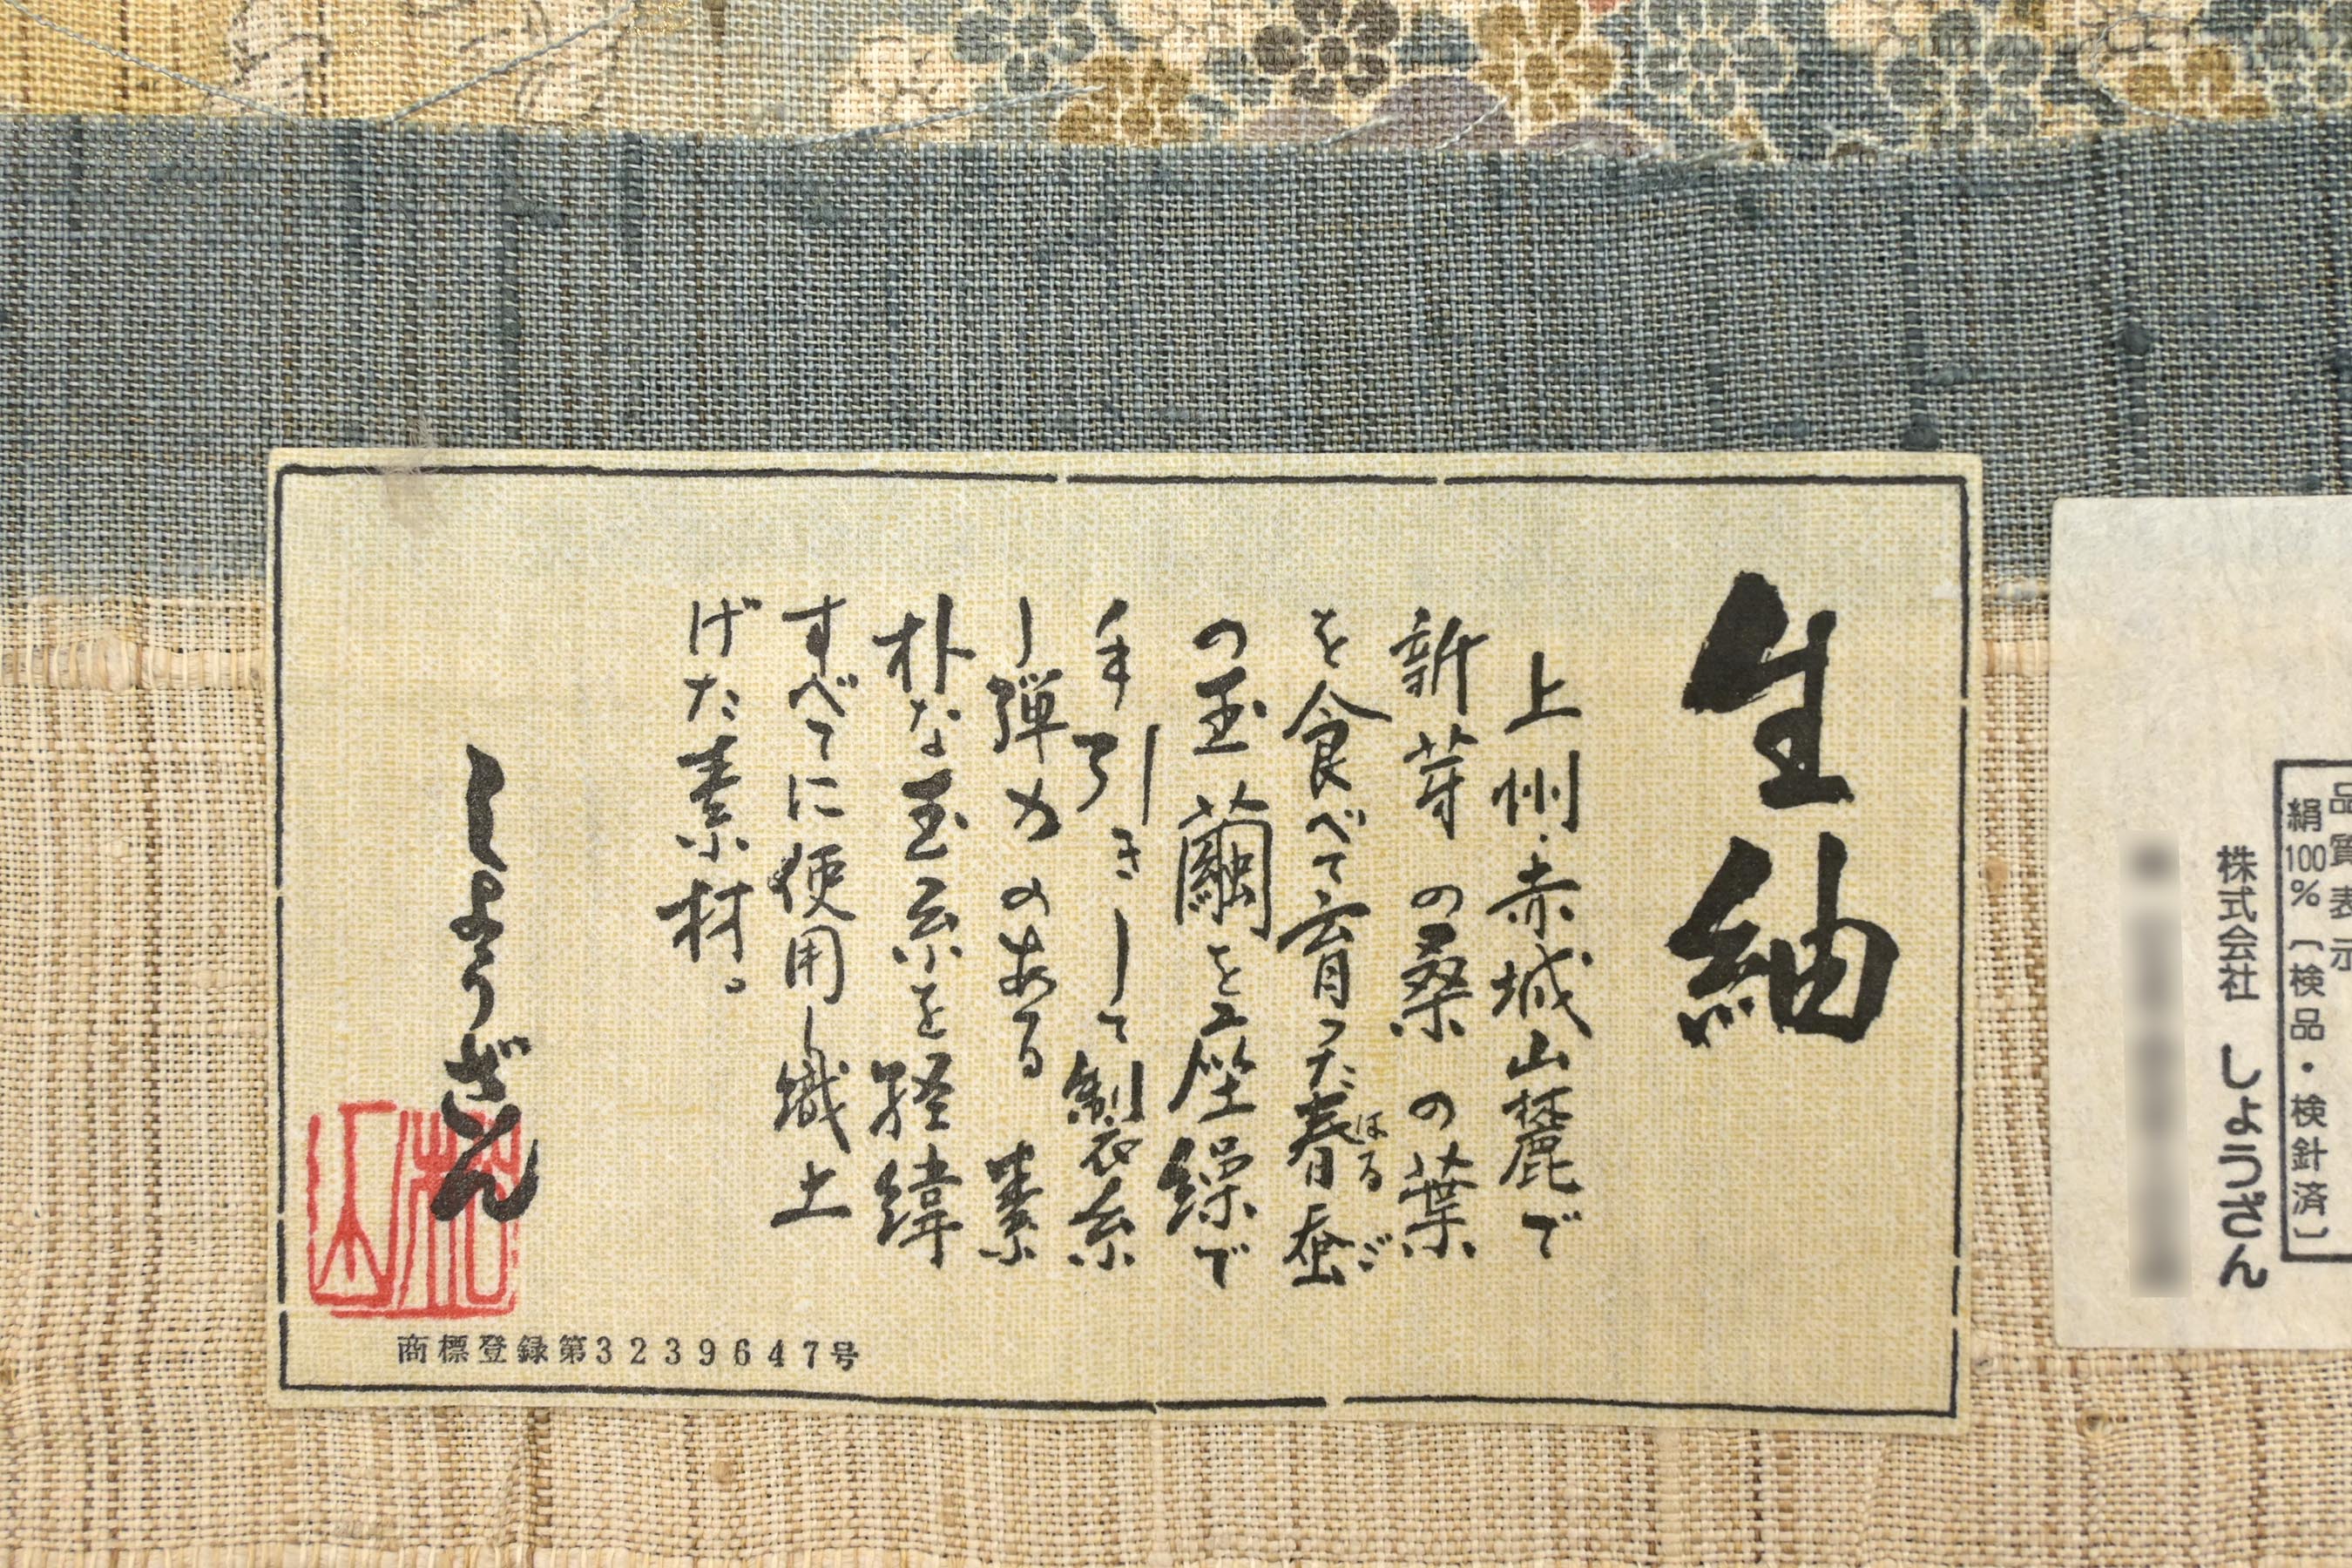 生紬
上州・赤城山麓で
新芽の桑の葉
を食べて育った春蚕
はるご
の玉繭を座繰で
手引きして製糸
し弾力のある素
朴な玉糸を経緯
すべてに使用し織上
げた素材。
しょうざん
松山
商標登録第3239647号
品質表示
絹100%〔検品・検針済〕
株式会社 しょうざん